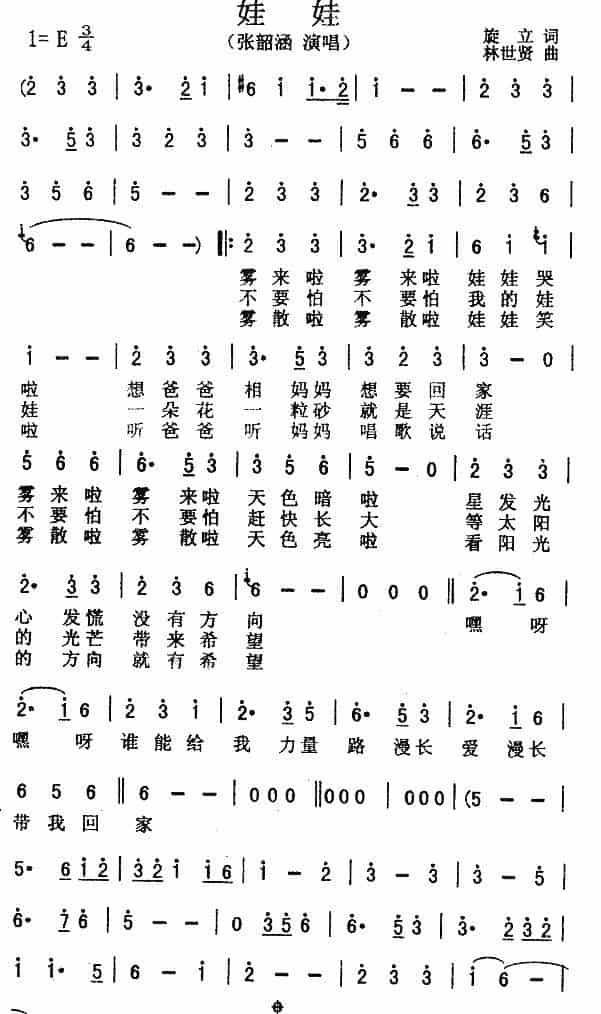 娃 娃
1= E 3/4
（张韶涵 演唱）
旋 立 词
林世贤 曲
(2 3 3 | 3• 2 1 | #6 1 1•2 | 1 - - | 2 3 3 |
3• 5 3 | 3 2 3 | 3 - - | 5 6 6 | 6• 5 3 |
3 5 6 | 5 - - | 2 3 3 | 2• 3 3 | 2 3 6 |
6 - - | 6 - -) ‖: 2 3 3 | 3• 2 1 | 6 1 1 |
雾 来 啦 雾 来啦 娃娃哭
不 要 怕 不 要怕 我的娃
雾 散 啦 雾 散啦 娃娃笑
1 - - | 2 3 3 | 3• 5 3 | 3 2 3 | 3 - 0 |
啦 想爸爸 相 妈妈 想要回 家
娃 一朵花 一 粒砂 就是天 涯
啦 听爸爸 听 妈妈 唱歌说 话
5 6 6 | 6• 5 3 | 3 5 6 | 5 - 0 | 2 3 3 |
雾来啦 雾 来啦 天色暗 啦 星发光
不要怕 不 要怕 赶快长 大 等太阳
雾散啦 雾 散啦 天色亮 啦 看阳光
2• 3 3 | 2 3 6 | 6 - - | 0 0 0 ‖ 2• 1 6 |
心 发慌 没有方 向 嘿 呀
的 光芒 带来希 望
的 方向 就有希 望
2• 1 6 | 2 3 1 | 2• 3 5 | 6• 5 3 | 2• 1 6 |
嘿 呀 谁能给 我 力量 路 漫长 爱 漫长
6 5 6 ‖ 6 - - | 0 0 0 ‖ 0 0 0 | 0 0 0 | (5 - - |
带我回 家
5• 6 1 2 | 3 2 1 1 6 | 1 - 2 | 3 - 3 | 3 - 5 |
6• 7 6 | 5 - - | 0 3 5 6 | 6• 5 3 | 3• 2 3 2 |
1 1• 5 | 6 - 1 | 2 - - | 3 3 2 | 1 - 1 | 1 - - |